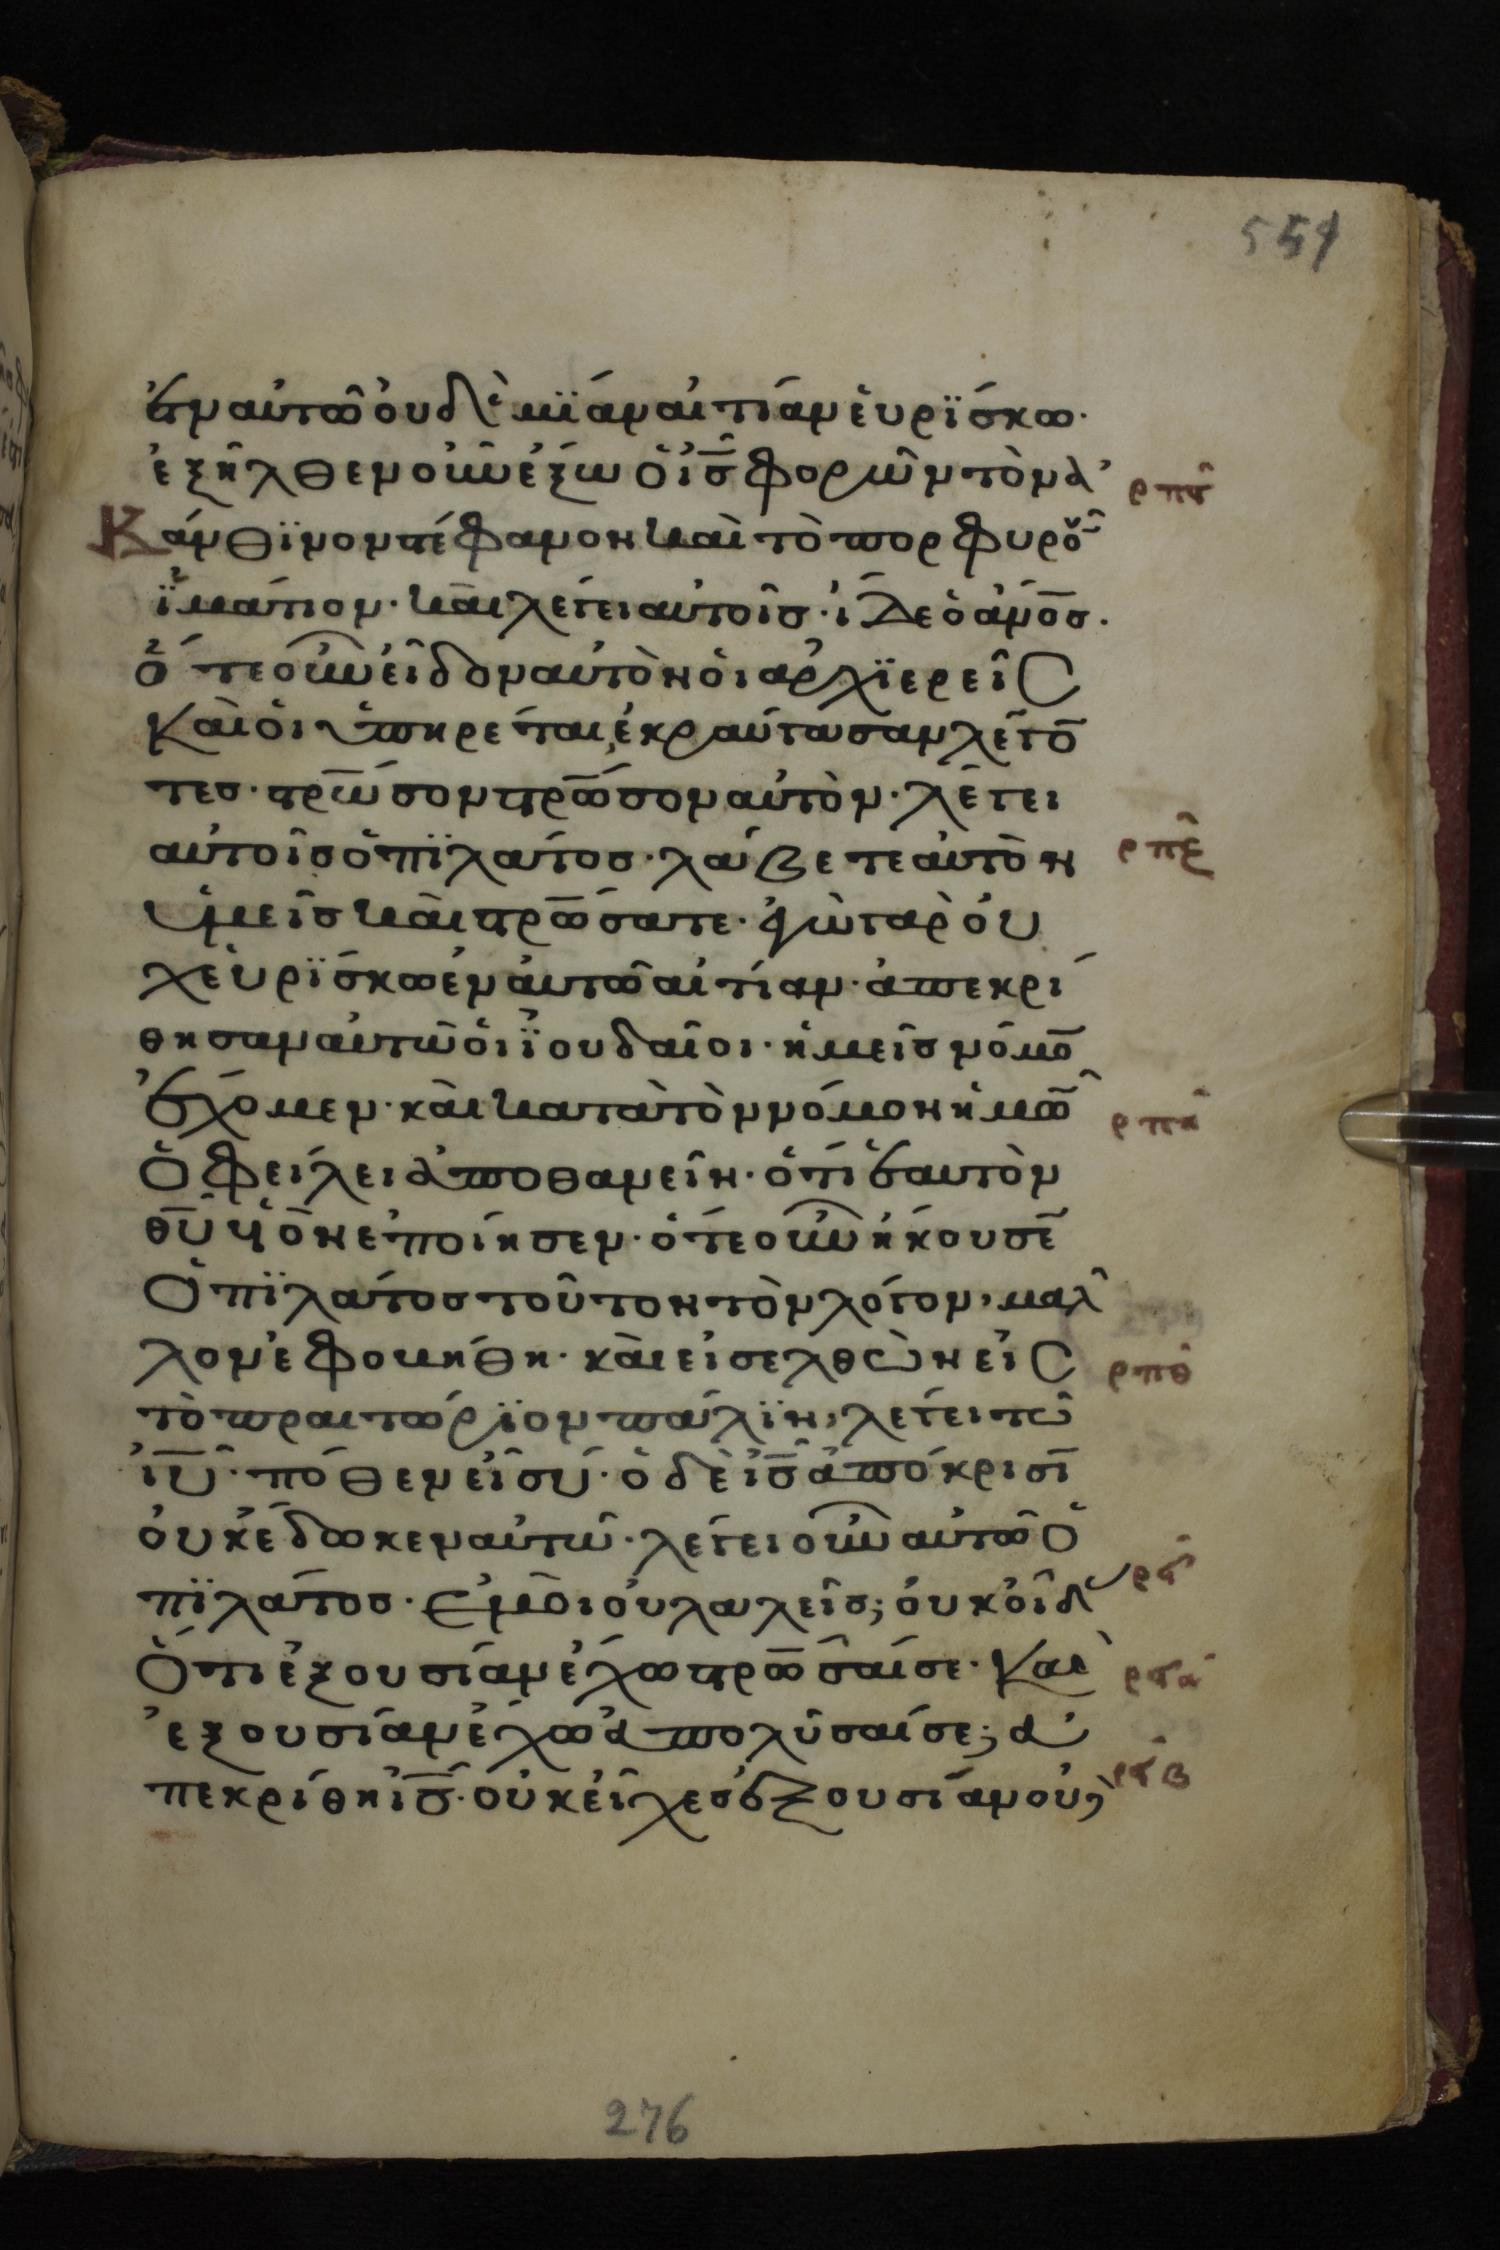 551
ἐν αὐτῶ οὐδὲ μϊάν αἰτίαν ἑυρΐσκω·
ἐξῆλθεν οὖν ἔξω ὁ ἰς̅ φορῶν τὸν ἀ
ρπζ
Κάνθϊνον στέφανον καὶ τὸ πορφυροῦ
ϊμάτιον· καὶ λέγει αὐτοῖσ· ἴδε ὁ ἀν̅ο̅σ·
ὅτε οὖν εἶδον αὐτὸν ὁι ἀρχϊερεῖσ
καὶ ὁι ὑπηρέται, ἐκραύγασαν λέγο̅
τεσ· στρω̅σον στρω̅σον αὐτὸν· λέγει
αὐτοῖσ ὁ πϊλάτοσ· λάβετε αὐτὸν
ρπη
ὑμεῖσ καὶ στρω̅σατε· ἐγὼ γὰρ οὐ
χ ἑυρΐσκω ἐν ἀυτῶ αἰτίαν· ἀπεκρί
θησαν αὐτῶ ὁι ϊουδαῖοι· ἡμεῖσ νόμο̅
ἔχομεν· καὶ κατὰ τὸν νόμον ἡμω̅
ρπη
ὀφείλει ἀποθανεῖν· ὅτι ἑαυτὸν
θ̅υ̅ ὑ̅ο̅ν ἐποίησεν· ὅτε οὖν ἤκουσε̅
ὁ πϊλάτοσ τοῦτον τὸν λόγον, μαλ
λον ἐφοβήθη· καὶ εἰσελθὼν εἰσ
ρπθ
τὸ πραιτώρϊον πάλϊν, λέγει τῶ
ἰ̅υ̅· πόθεν εἶ σύ· ὁ δὲ ἰς̅ ἀπόκρισι̅
οὐκ ἔδωκεν αὐτῶ· λέγει οὖν αὐτῶ ὁ
πϊλάτοσ· ἐμὸι οὐ λαλεῖσ; οὐκ οἶδ
ρϟ
ὅτι ἐξουσίαν ἔχω στρω̅σαί σε· καὶ
ρϟα
ἐξουσίαν ἔχω ἀπολῦσαί σε; ἀ
πεκρίθη ἰς̅· οὐκ εἶχεσ ἐξουσίαν οὐ
ρϟβ
276